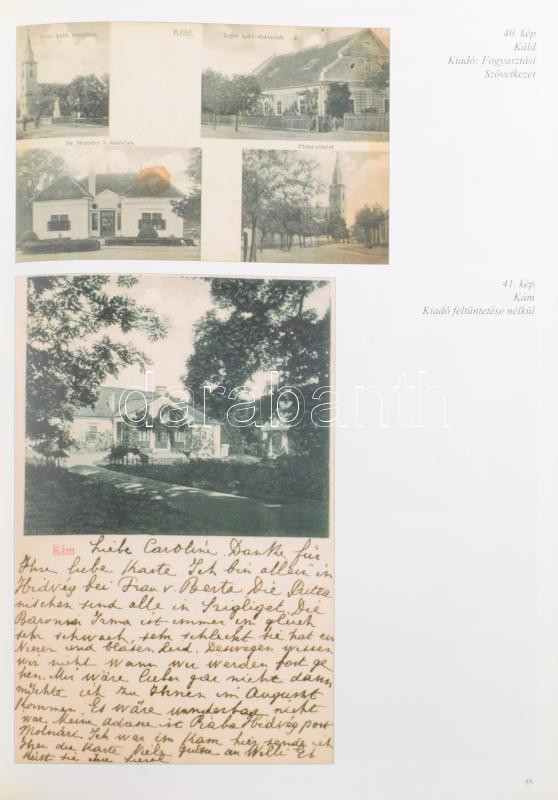 40. kép
Káld
Kiadó: Fogyasztási
Szövetkezet
Róm. kath. templom.
Káld.
Dr. Marothy L. kastélya.
Utcza-részlet.
41. kép
Kám
Kiadó feltüntetése nélkül
darabanth
Kám
Liebe Caroline. Danke für
Ihre liebe Karte Ich bin allein in
Hidvég bei Frau v. Berta Die
nischen sind alle in Szigliget. Die
Baronin Irma ist immer im gleich
sehr schwach, sehr schlecht sie hat ein
Nieren und blasen leid. Deswegen wissen
wir nicht wann wir werden fort ge
hen. Mir wäre lieber gar nicht dann
möchte ich zu Ihnen im August
Kommen. Es wäre wunderbar nicht
war. Meine adresse ist Rába Hidvég post
Molnári. Ich war in Kam hier sende ich
Ihnen die Karte Viele grüsse an Willi Es
Küst sie ihre
55